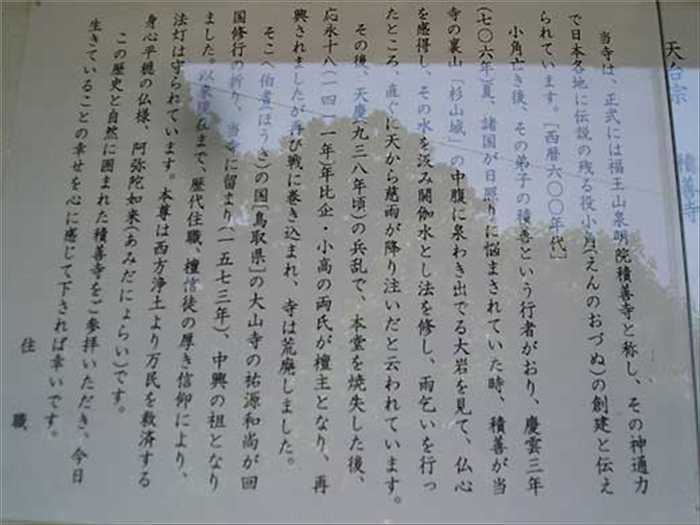 天台宗 積善寺
当寺は、正式には福王山泉明院積善寺と称し、その神通力
で日本各地に伝説の残る役小角(えんのおづぬ)の創建と伝え
られています。［西暦六〇〇年代］
小角亡き後、その弟子の積善という行者がおり、慶雲三年
(七〇六年)夏、諸国が日照りに悩まされていた時、積善が当
寺の裏山「杉山城」の中腹に泉わき出でる大岩を見て、仏心
を感得し、その水を汲み閼伽水とし法を修し、雨乞いを行っ
たところ、直ぐに天から慈雨が降り注いだと云われています。
その後、天慶(九三八年頃)の兵乱で、本堂を焼失した後、
応永十八(一四一一年)年比企・小高の両氏が檀主となり、再
興されましたが再び戦に巻き込まれ、寺は荒廃しました。
そこへ伯耆(ほうき)の国［鳥取県］の大山寺の祐源和尚が回
国修行の折り、当寺に留まり(一五七三年)、中興の祖となり
ました。以来現在まで、歴代住職、檀信徒の厚き信仰により、
法灯は守られています。本尊は西方浄土より万民を救済する
身心平穏の仏様、阿弥陀如来(あみだにょらい)です。
この歴史と自然に囲まれた積善寺をご参拝いただき、今日
生きていることの幸せを心に感じて下されば幸いです。
住職